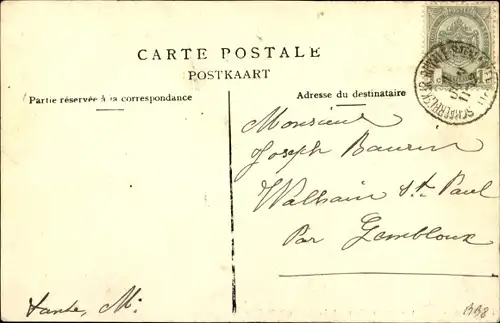 CARTE POSTALE
POSTKAART
Partie réservée à la correspondance
Adresse du destinataire
Monsieur
Joseph Baurin
Walhain St. Paul
Par Gembloux
tante, M.